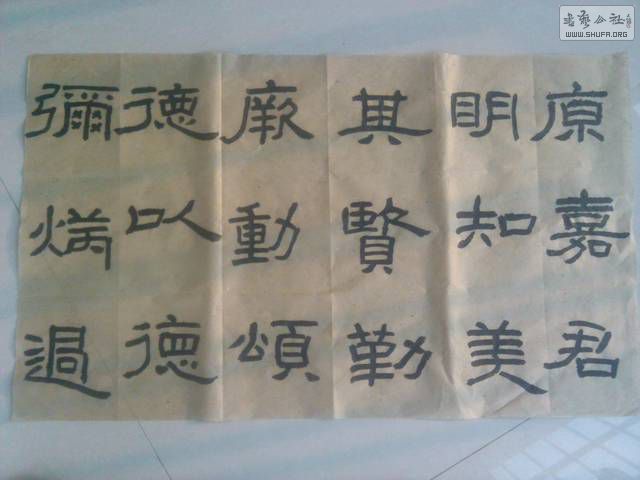 原嘉君
明知美
其賢勤
厥動頌
德以德
彌過
書藝公社
WWW.SHUFA.ORG